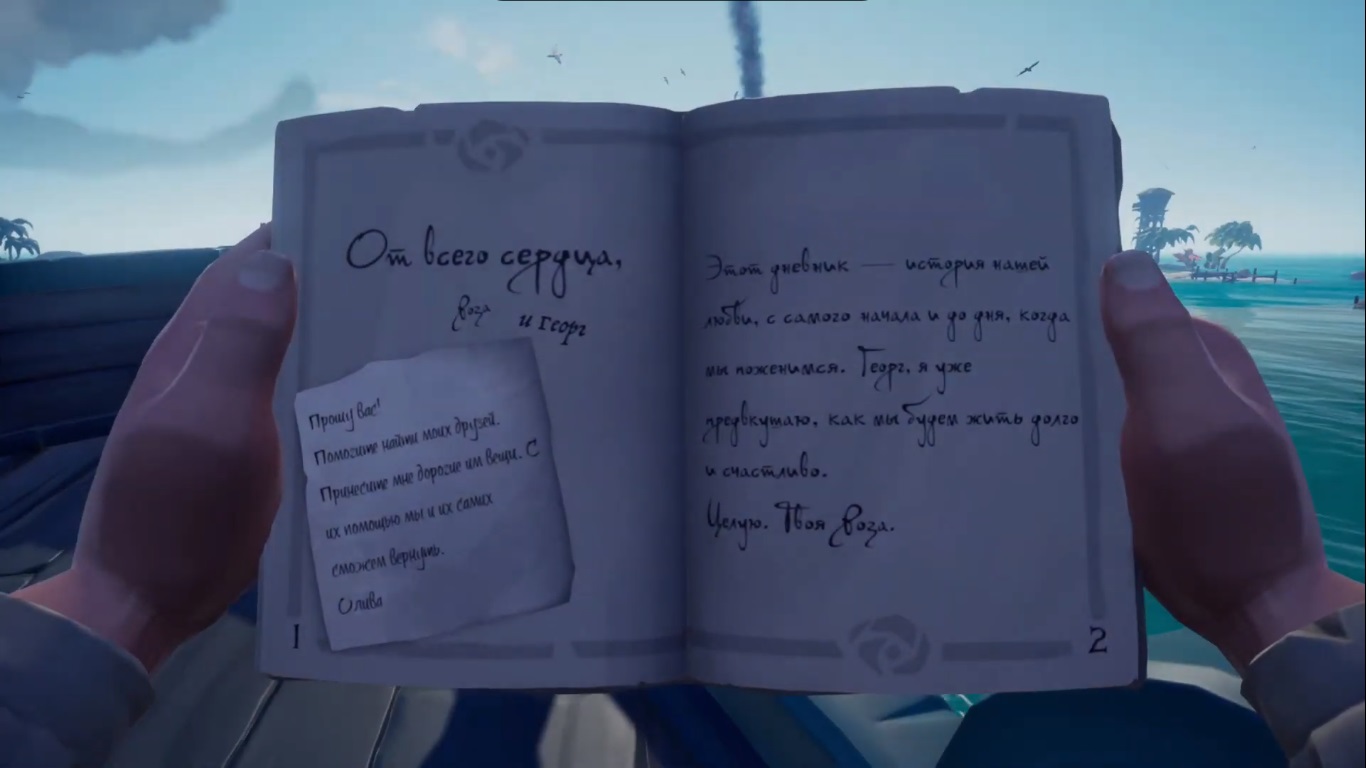 От всего сердца,
Роза и Георг
Прошу вас!
Помогите найти моих друзей.
Принесите мне дорогие им вещи. С
их помощью мы и их самих
сможем вернуть.
Олива
1
Этот дневник — история нашей
любви, с самого начала и до дня, когда
мы поженимся. Георг, я уже
предвкушаю, как мы будем жить долго
и счастливо.
Целую. Твоя Роза.
2